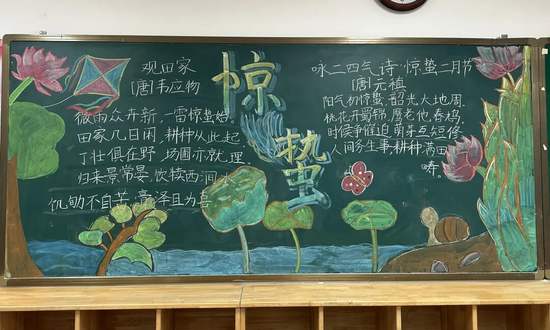 观田家
[唐]韦应物
微雨众卉新,一雷惊蛰始.
田家几日闲,耕种从此起
丁壮俱在野,场圃亦就理.
归来景常晏,饮犊西涧水
饥劬不自苦,膏泽且为喜
惊
蛰
咏二四气诗·惊蛰二月节
[唐]元稹
阳气初惊蛰,韶光大地周.
桃花开蜀锦,鹰老化春鸠,
时候争催迫,萌芽互短修
人间务生事,耕种满田
畴.